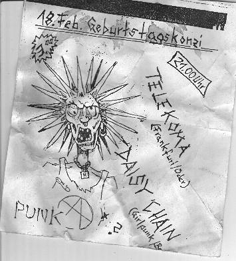 18. Feb. Geburtstagskonzi
21.00 Uhr
TELEKOIKA
(Frankfurt/Oder)
DAISY CHAIN
(Girlpunk
PUNK
?